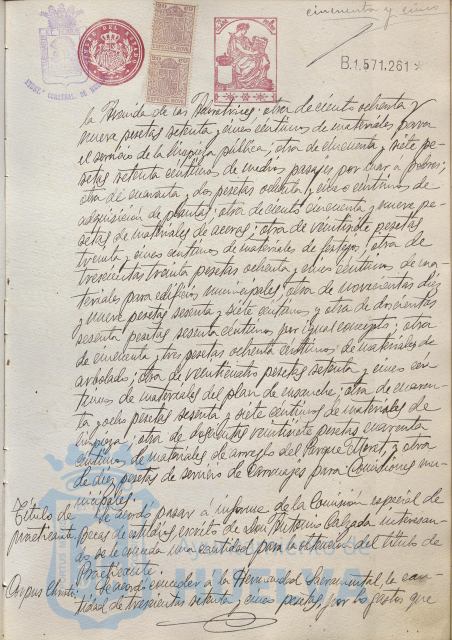 cincuenta y cinco
B.1.571.261
la Avenida de las Palmeras; otra de ciento ochenta y
nueve pesetas setenta y cinco céntimos de materiales para
el servicio de la limpieza pública; otra de cincuenta y siete pe-
setas setenta céntimos de medios pasajes por mar á pobres;
otra de cuarenta y dos pesetas ochenta y cinco céntimos de
adquisición de plantas; otra de ciento cincuenta y nueve pe-
setas de materiales de aceras; otra de veintisiete pesetas
treinta y cinco céntimos de materiales de festejos; otra de
trescientas treinta pesetas ochenta y cinco céntimos de ma-
teriales para edificios municipales; otra de novecientas diez
y nueve pesetas sesenta y siete céntimos y otra de doscientas
sesenta pesetas sesenta céntimos por igual concepto; otra
de cincuenta y tres pesetas ochenta céntimos de materiales de
arbolado; otra de veintiocho pesetas setenta y cinco cén-
timos de materiales del plan de ensanche; otra de cuaren-
ta y ocho pesetas sesenta y siete céntimos de materiales de
limpieza; otra de doscientas veintisiete pesetas cuarenta
céntimos de materiales de arreglo del Parque Moret, y otra
de diez pesetas de servicio de Carruajes para Comisiones mu-
nicipales.
Título de
practicante.
Se acordó pasar á informe de la Comisión especial de
Becas de estudios escrito de Don Antonio Calzada interesan-
do se le conceda una cantidad para la obtención del título de
Practicante.
Corpus Christi.
Se acordó conceder á la Hermandad Sacramental, la can-
tidad de trescientas setenta y cinco pesetas, por los gastos que
HUELVA